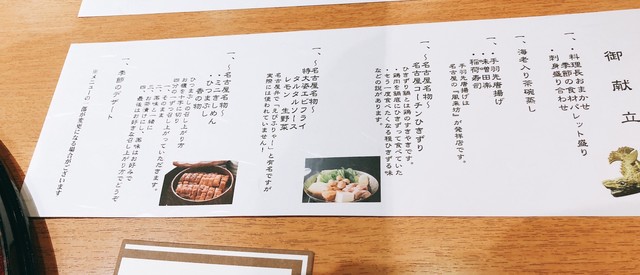 御献立
一、料理長おまかせ
・季節の食材パレット盛り
・刺身盛り合わせ
一、海老入り茶碗蒸し
一、手羽先唐揚げ
・味噌田楽
・稲荷寿司
手羽先唐揚げは
名古屋の「風来坊」が発祥店です。
一、～名古屋名物～
名古屋コーチンひきずり
ひきずり鍋とは鶏のすきやきです。
鶏肉を鍋底にひきずって食べていた
・もう一度食べたくなる程ひきずる味
などの説があります。
一、～名古屋名物～
特大姿エビフライ
タルタルソース
レモン 生野菜
名古屋弁で「えびふりゃー」と有名ですが
実際には使われていません!
一、～名古屋名物～
・ミニきしめん
・ひつまぶし
香の物
ひつまぶしの召し上がり方
お櫃の中を十字に切り
四分の一ずつ召し上がっていただきます。
一、そのまま
二、薬味と一緒に
三、お茶漬けに、薬味はお好みで
四、最後はお好きな召し上がり方でどうぞ
一、季節のデザート
※メニューの一部が変更になる場合がございます